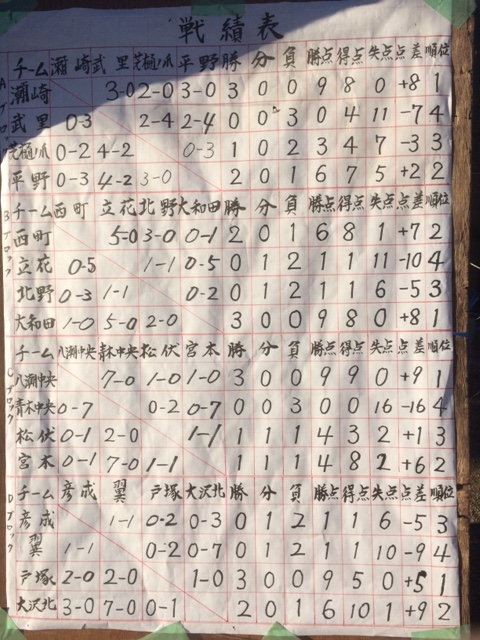 戦績表
チーム 瀬崎 武里 荒樋ノ爪 平野 勝 分 負 勝点 得点 失点 点差 順位
瀬崎 3-0 2-0 3-0 3 0 0 9 8 0 +8 1
武里 0-3 2-4 2-4 0 0 3 0 4 11 -7 4
荒樋ノ爪 0-2 4-2 0-3 1 0 2 3 4 7 -3 3
平野 0-3 4-2 3-0 2 0 1 6 7 5 +2 2
チーム 西町 立花 北野 大和田 勝 分 負 勝点 得点 失点 点差 順位
西町 5-0 3-0 0-1 2 0 1 6 8 1 +7 2
立花 0-5 1-1 0-5 0 1 2 1 1 11 -10 4
北野 0-3 1-1 0-2 0 1 2 1 1 6 -5 3
大和田 1-0 5-0 2-0 3 0 0 9 8 0 +8 1
チーム 八潮中央 青木中央 松伏 宮本 勝 分 負 勝点 得点 失点 点差 順位
八潮中央 7-0 1-0 1-0 3 0 0 9 9 0 +9 1
青木中央 0-7 0-2 0-7 0 0 3 0 0 16 -16 4
松伏 0-1 2-0 1-1 1 1 1 4 3 2 +1 3
宮本 0-1 7-0 1-1 1 1 1 4 8 2 +6 2
チーム 彦成 翼 戸塚 大沢北 勝 分 負 勝点 得点 失点 点差 順位
彦成 1-1 0-2 0-3 0 1 2 1 1 6 -5 3
翼 1-1 0-2 0-7 0 1 2 1 1 10 -9 4
戸塚 2-0 2-0 1-0 3 0 0 9 5 0 +5 1
大沢北 3-0 7-0 0-1 2 0 1 6 10 1 +9 2
Aブロック
Bブロック
Cブロック
Dブロック